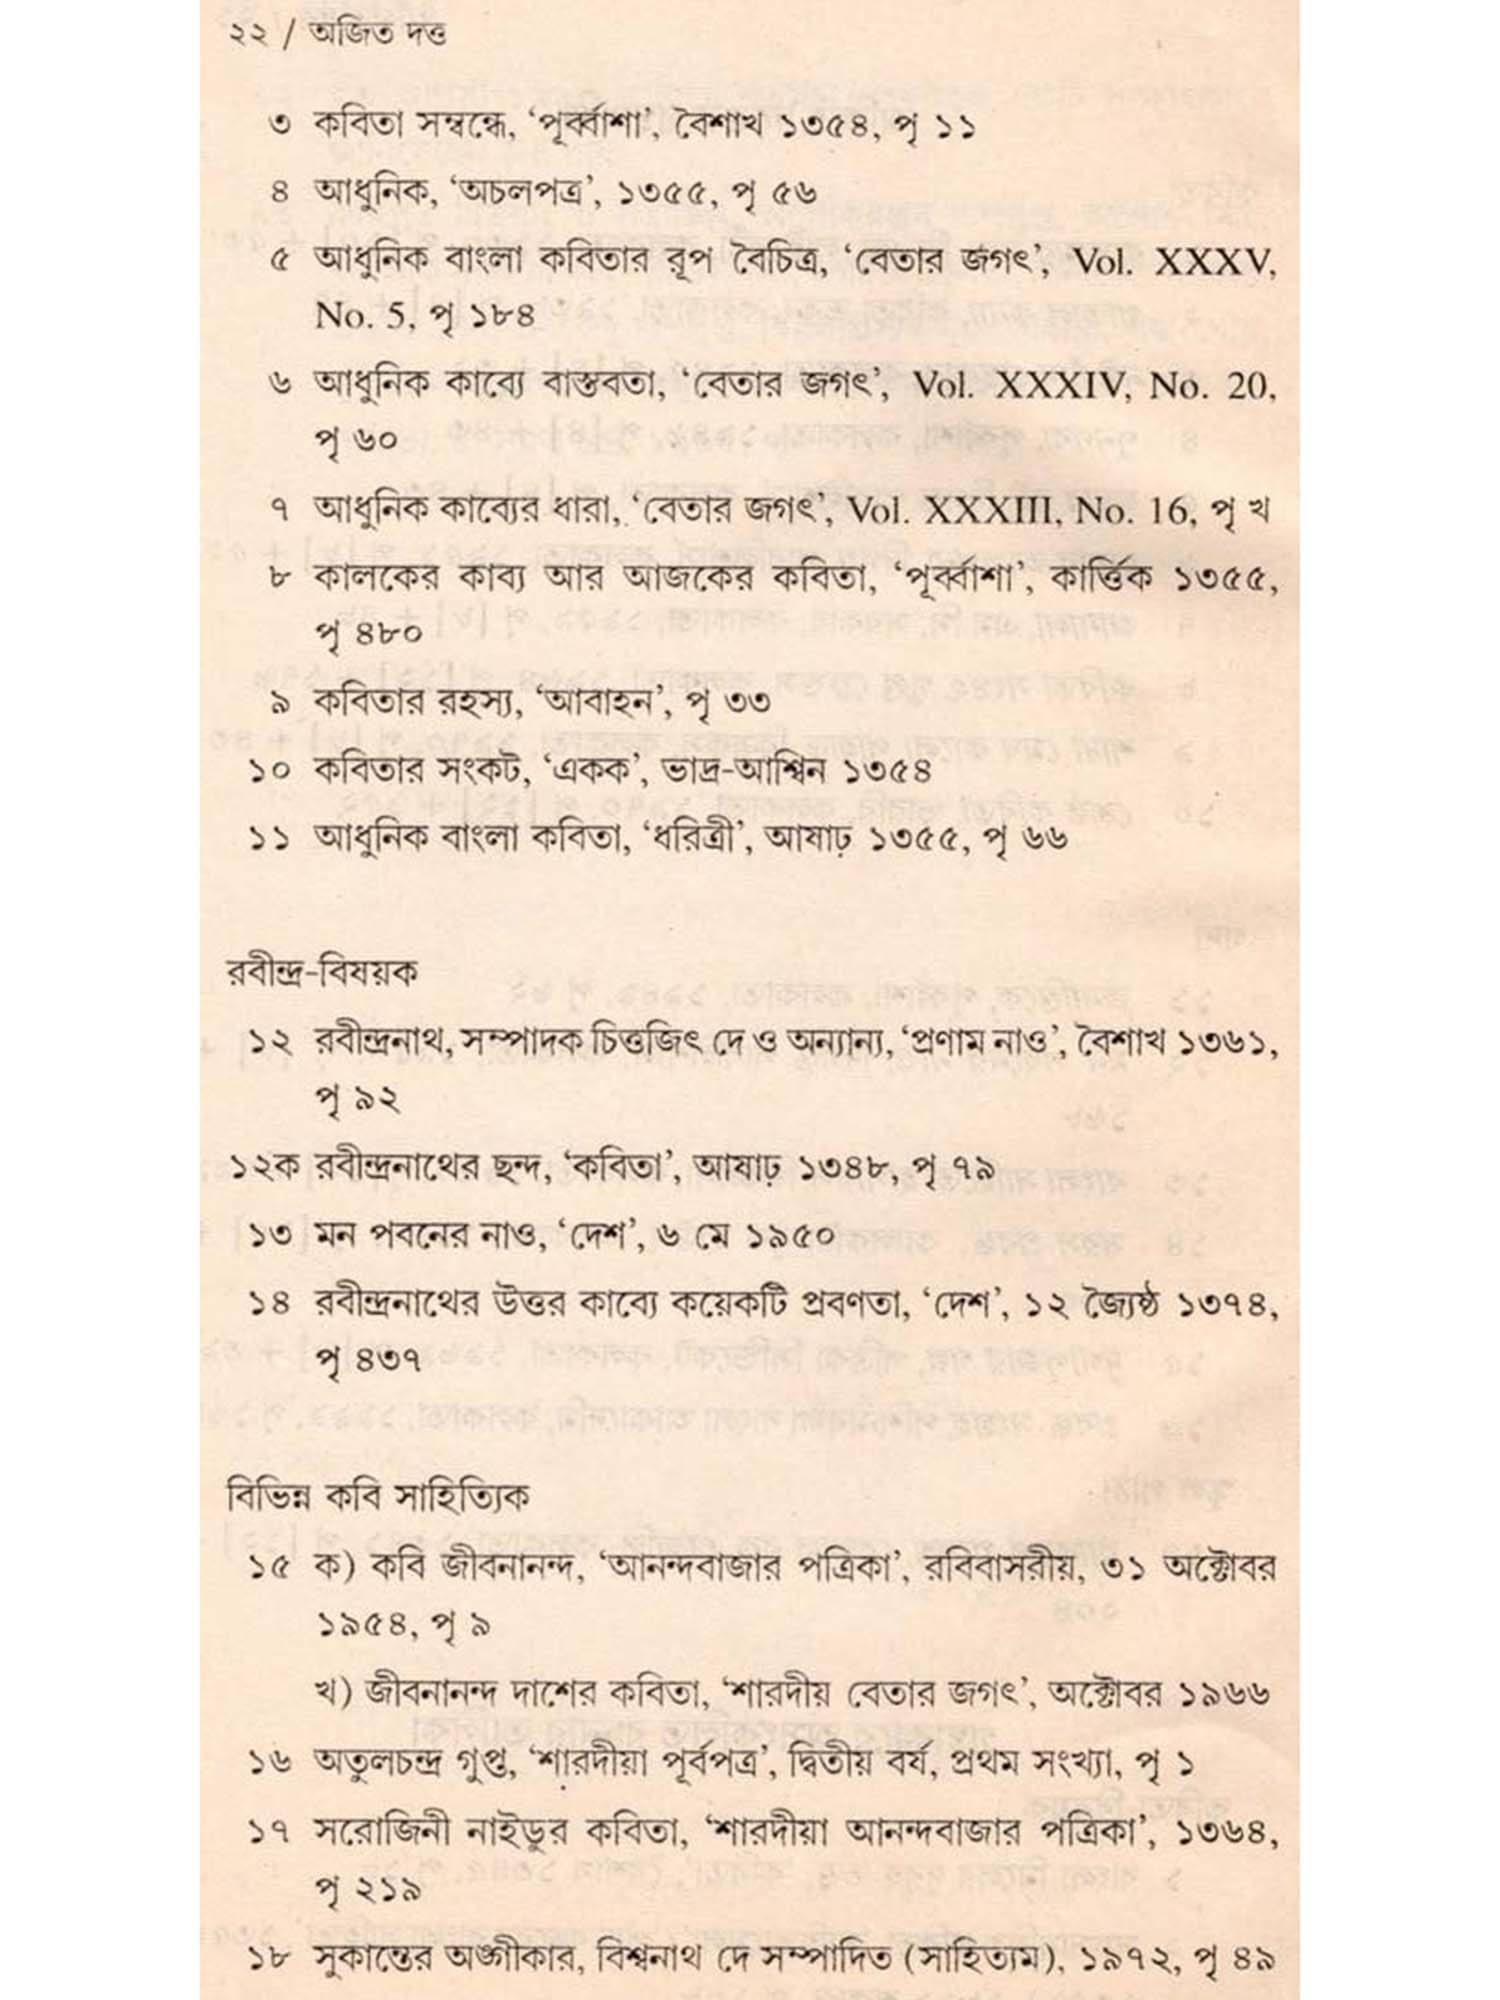 ২২ / অজিত দত্ত
৩ কবিতা সম্বন্ধে, ‘পূর্ব্বাশা’, বৈশাখ ১৩৫৪, পৃ ১১
৪ আধুনিক, ‘অচলপত্র’, ১৩৫৫, পৃ ৫৬
৫ আধুনিক বাংলা কবিতার রূপ বৈচিত্র, ‘বেতার জগৎ’, Vol. XXXV,
No. 5, পৃ ১৮৪
৬ আধুনিক কাব্যে বাস্তবতা, ‘বেতার জগৎ’, Vol. XXXIV, No. 20,
পৃ ৬০
৭ আধুনিক কাব্যের ধারা, ‘বেতার জগৎ’, Vol. XXXIII, No. 16, পৃ খ
৮ কালকের কাব্য আর আজকের কবিতা, ‘পূর্ব্বাশা’, কার্ত্তিক ১৩৫৫,
পৃ ৪৮০
৯ কবিতার রহস্য, ‘আবাহন’, পৃ ৩৩
১০ কবিতার সংকট, ‘একক’, ভাদ্র-আশ্বিন ১৩৫৪
১১ আধুনিক বাংলা কবিতা, ‘ধরিত্রী’, আষাঢ় ১৩৫৫, পৃ ৬৬
রবীন্দ্র-বিষয়ক
১২ রবীন্দ্রনাথ, সম্পাদক চিত্তজিৎ দে ও অন্যান্য, ‘প্রণাম নাও’, বৈশাখ ১৩৬১,
পৃ ৯২
১২ক রবীন্দ্রনাথের ছন্দ, ‘কবিতা’, আষাঢ় ১৩৪৮, পৃ ৭৯
১৩ মন পবনের নাও, ‘দেশ’, ৬ মে ১৯৫০
১৪ রবীন্দ্রনাথের উত্তর কাব্যে কয়েকটি প্রবণতা, ‘দেশ’, ১২ জ্যৈষ্ঠ ১৩৭৪,
পৃ ৪৩৭
বিভিন্ন কবি সাহিত্যিক
১৫ ক) কবি জীবনানন্দ, ‘আনন্দবাজার পত্রিকা’, রবিবাসরীয়, ৩১ অক্টোবর
১৯৫৪, পৃ ৯
খ) জীবনানন্দ দাশের কবিতা, ‘শারদীয় বেতার জগৎ’, অক্টোবর ১৯৬৬
১৬ অতুলচন্দ্র গুপ্ত, ‘শারদীয়া পূর্বপত্র’, দ্বিতীয় বর্য, প্রথম সংখ্যা, পৃ ১
১৭ সরোজিনী নাইডুর কবিতা, ‘শারদীয়া আনন্দবাজার পত্রিকা’, ১৩৬৪,
পৃ ২১৯
১৮ সুকান্তের অঙ্গীকার, বিশ্বনাথ দে সম্পাদিত (সাহিত্যম), ১৯৭২, পৃ ৪৯